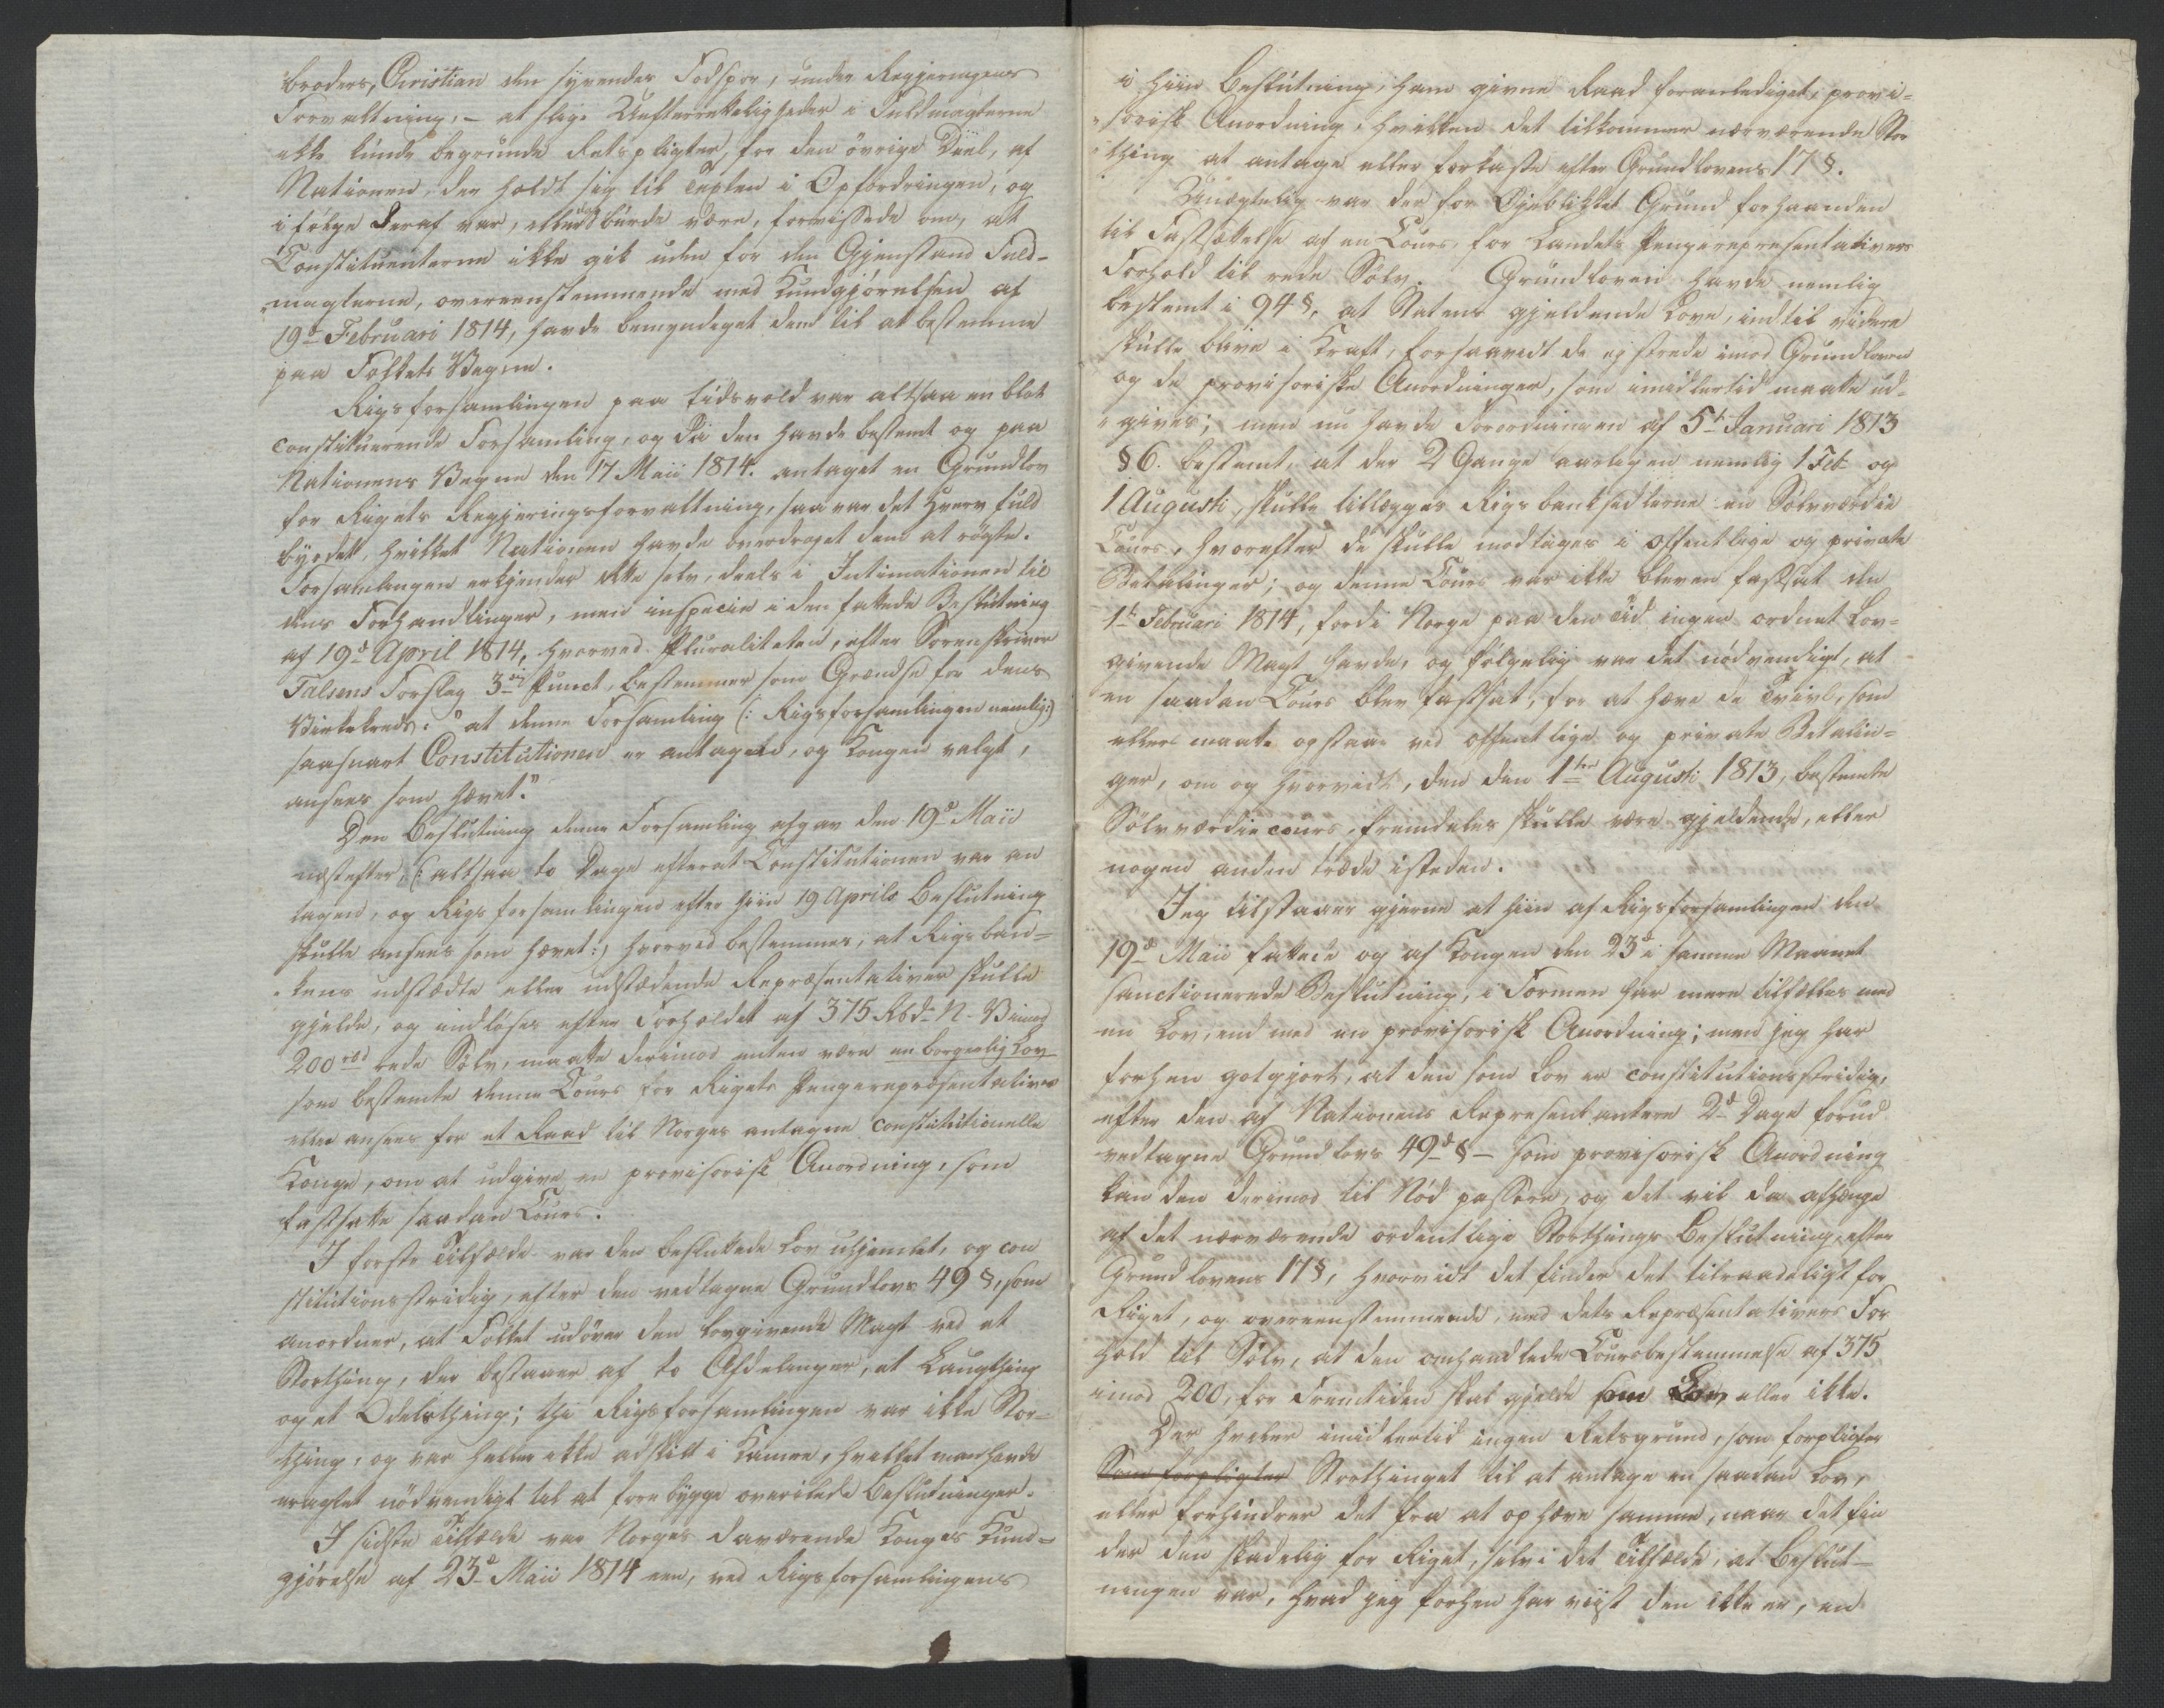 broders, Christian den syvendes Fodspor, under Regjeringens
Forvaltning, – at slige Uefterrettelighheder i Fuldmagterne
ikke kunde begrunde Retspligter, for den övrige Deel, af
Nationen, der holdt sig til Texten i Opfordringen, og
i fölge deraf var, eller burde være, forvissede om, at
Constituenterne ikke gik uden for den Gjenstand Fuld-
magterne, overeenstemmende med Kundgjörelsen af
19de Februari 1814, havde bemyndeget dem til at bestemme
paa Folkets Vegne.
Rigsforsamlingen paa Eidsvold var altsaa en blot
constituerende Forsamling, og da den havde bestemt og paa
Nationens Vegne den 17 Maii 1814. antaget en Grundlov
for Rigets Regjeringsforvaltning, saa var det Hverv fuld
byrdet, hvilket Nationen havde overdraget dem at rögte.
Forsamlingen erkjender dette selv, deels i Intimationen til
dens Forhandlinger, men inspecie i den fattede Beslutning
af 19d April 1814, hvorved Pluraliteten, efter Sorenskriver
Falsens Forslag 3die Punct, bestemmer som Grændse for dens
Virkekreds: "at denne Forsamling (: Rigsforsamlingen nemlig:)
saasnart Constitutionen er antagen, og Kongen valgt,
ansees som hævet."
Den Beslutning denne Forsamling afgav den 19d Maii
næstefter, (: altsaa to Dage efterat Constitutionen var an
tagen, og Rigsforsamlingen efter hiin 19 Aprils Beslutning
skulle ansees som hævet:) hvorved bestemmes, at Rigsban=
kens udstædte eller udstædende Repræsentativer skulle
gjelde, og indlöses efter Forholdet af 375 Rbd N. V. imod
200 rbd rede Sölv, maatte derimod enten være en borgerlig Lov
som bestemte denne Cours for Rigets Pengerepræsentativer
eller ansees for et Raad til Norges antagne constitutionelle
Konge, om at udgive en provisorisk Anordning, som
fastsatte saadan Cours.
I förste Tilfælde var den besluttede Lov uhjemlet, og con
stitutionsstridig, efter den vedtagne Grundlovs 49 §, som
anordner, at Folket udöver den lovgivende Magt ved et
Storthing, der bestaaer af to Afdelinger, et Laugthing
og et Odelsthing; thi Rigsforsamlingen var ikke Stor=
thing, og var heller ikke adskilt i Kamre, hvilket man havde
eragtet nödvendigt til at forebygge overilede Beslutninger.
I sidste Tilfælde var Norges daværende Konges Kund=
gjörelse af 23d Maii 1814 een, ved Rigsforsamlingens
i hiin Beslutning, ham givne Raad foranlediget, provi=
sorisk Anordning, hvilken det tilkommer nærværende Stor
thing at antage eller forkaste efter Grundlovens 17 §.
Unægtelig var der for Öjeblikket Grund forhaanden
til Fastsættelse af en Cours, for Landets Pengerepresentativers
Forhold til rede Sölv. Grundloven havde nemlig
bestemt i 94 §, at Statens gjeldende Love, indtil videre
skulle blive i Kraft, forsaavidt de ej strede imod Grundloven
og de provisoriske Anordninger, som imidlertid maatte ud=
gives; men nu havde Forordningen af 5t Januari 1813
§ 6. bestemt, at der 2 Gange aarligen nemlig 1 Feb og
1 Augusti, skulle tillægges Rigsbanksedlerne en Sölvværdie
Cours, hvorefter de skulle modtages i offentlige og private
Betalinger; og denne Cours var ikke bleven fastsat den
1te Februari 1814, fordi Norge paa den Tid ingen ordnet Lov=
givende Magt havde, og fölgelig var det nödvendigt, at
en saadan Cours blev fastsat, for at hæve de Tvivl, som
ellers maatte opstaae ved offentlige og private Betalin=
ger, om og hvorvidt, den den 1ste Augusti 1813, bestemte
Sölvværdiecours, fremdeles skulle være gjeldende, eller
nogen anden træde isteden.
Jeg tilstaaer gjerne at hiin af Rigsforsamlingen den
19d Maii fattede og af Kongen den 23d i samme Maaned
sanctionerede Beslutning, i Formen har mere tilfælles med
en Lov, end med en provisorisk Anordning; men jeg har
forhen godgjort, at den som Lov er constitutionsstridig,
efter den af Nationens Representantere 2d Dage forud
vedtagne Grundlovs 49d § – som provisorisk Anordning
kan den derimod til Nöd passere, og det vil da afhænge
af det nærværende ordentlige Storthings Beslutning, efter
Grundlovens 17 §, hvorvidt det finder det tilraadeligt for
Riget, og overeenstemmende, med dets Repræsentativers For
hold til Sölv, at den omhandlede Coursbestemmelse af 375
imod 200, for Fremtiden skal gjelde som Lov, eller ikke.
Der hviler imidlertid ingen Retsgrund, som forpligter
Som forpligter Storthinget til at antage en saadan Lov,
eller forhindrer det fra at ophæve samme, naar det fin
der den skadelig for Riget, selv i det Tilfælde, at Beslut=
ningen var, hvad jeg forhen har viist den ikke er, en